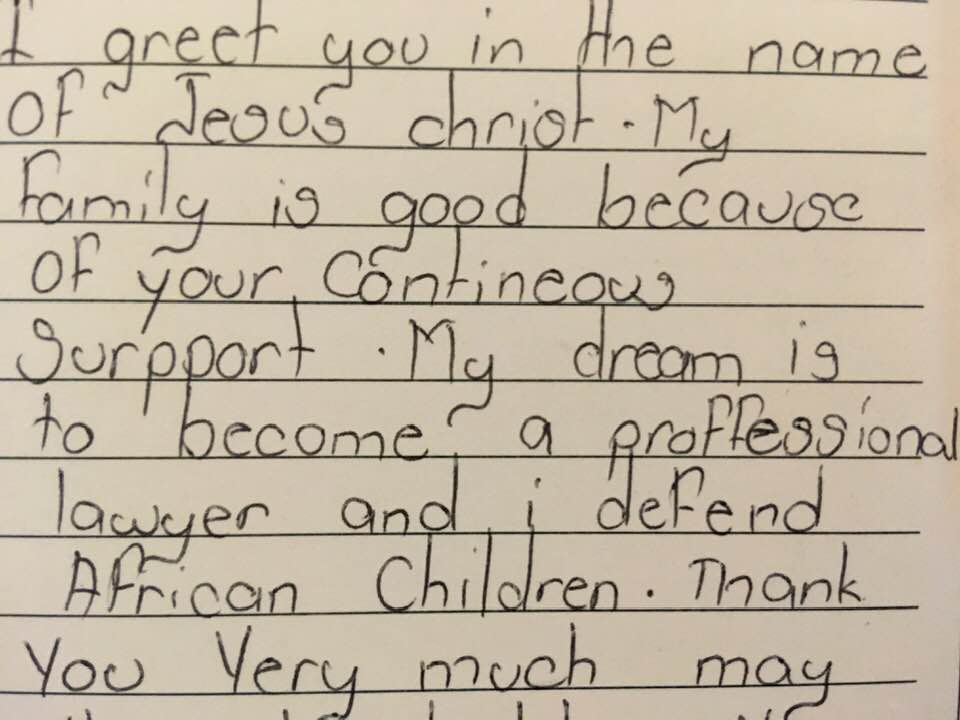 I greet you in the name
of Jesus christ. My
family is good because
of your Contineous
Surpport. My dream is
to become a proffessional
lawyer and i defend
African Children. Thank
You Very much may